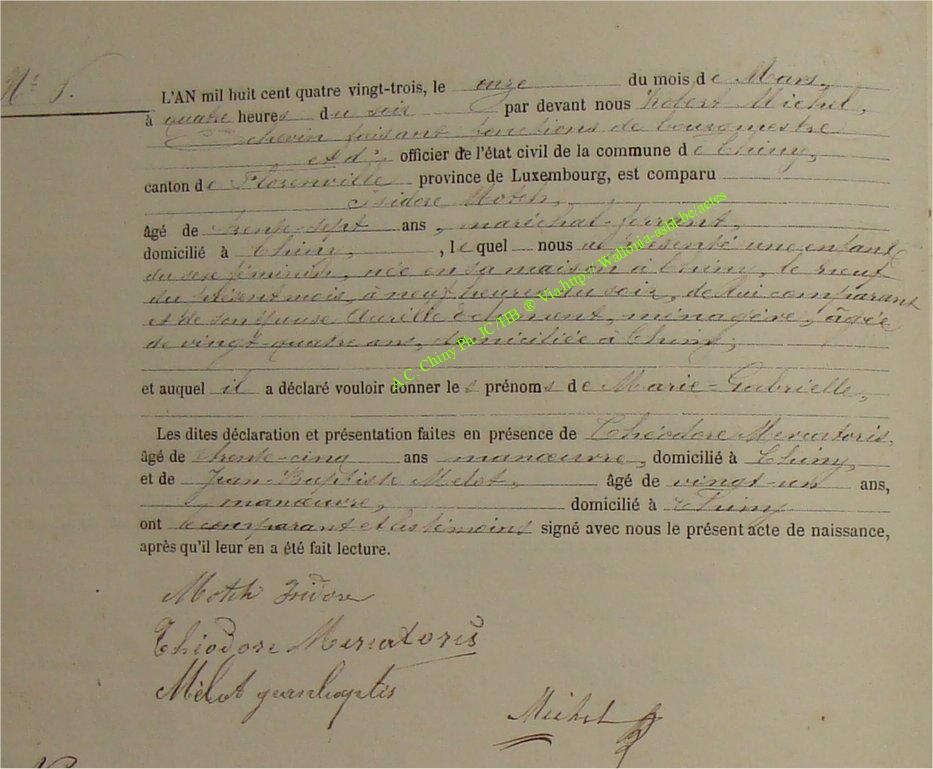 N° 8.
L'AN mil huit cent quatre vingt-trois, le onze du mois de Mars,
à quatre heures du soir par devant nous Robert Michel,
Echevin faisant fonctions de bourgmestre
officier de l'état civil de la commune de Chiny,
canton de Florenville province de Luxembourg, est comparu
Isidore Motch,
âgé de trente-sept ans, maréchal-ferrant,
domicilié à Chiny, , lequel nous a présenté une enfant
du sexe féminin, née en sa maison à Chiny, le neuf
du présent mois, à neuf heures du soir, de lui comparant
et de son épouse Aurélie ménagère, âgée
de vingt-quatre ans, domiciliée à Chiny;
et auquel il a déclaré vouloir donner les prénoms de Marie-Gabrielle,
Les dites déclaration et présentation faites en présence de Théodore Mercatoris,
âgé de trente-cinq ans manœuvre, domicilié à Chiny
et de Jean-Baptiste Melot, âgé de vingt-un ans,
manœuvre, domicilié à Chiny
ont le comparant et les témoins signé avec nous le présent acte de naissance,
après qu'il leur en a été fait lecture.
Motch Isidore
Théodore Mercatoris
Mélot jeanbaptis
Michel
A.C. Chiny Ph. JC /HB ® Via http://Wallonia-asbl-be/actes